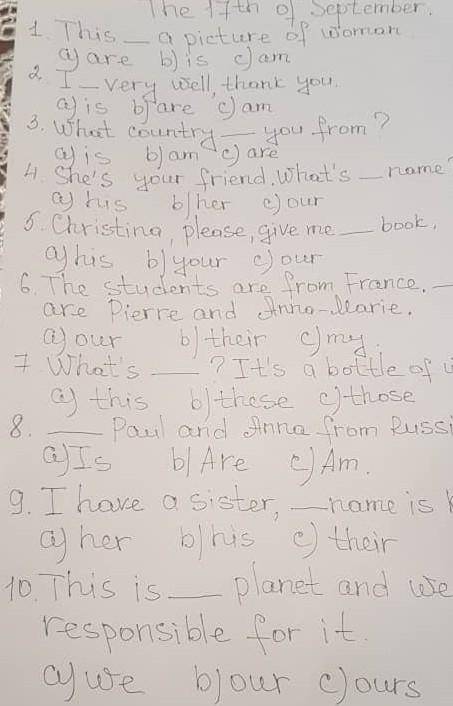 The 17th of September.
1. This __ a picture of woman
a) are b) is c) am
2. I _ very well, thank you.
a) is b) are c) am
3. What country __ you from?
a) is b) am c) are
4. She's your friend. What's _ name
a) his b) her c) our
5. Christina, please, give me __ book.
a) his b) your c) our
6. The students are from France. _
are Pierre and Anna-Marie.
a) our b) their c) my.
7. What's ___? It's a bottle of
a) this b) these c) those
8. ___ Paul and Anna from Russi
a) Is b) Are c) Am.
9. I have a sister, __ name is
a) her b) his c) their
10. This is ___ planet and we
responsible for it.
a) we b) our c) ours